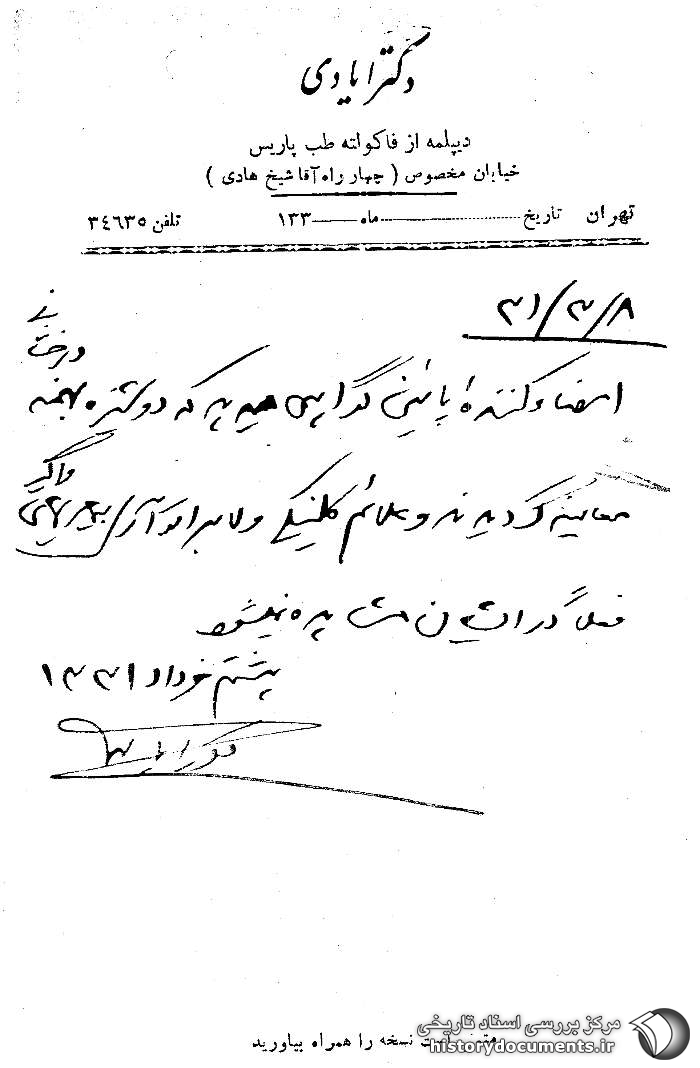 دکتر ایادی
دیپلمه از فاکولته طب پاریس
خیابان مخصوص ( چهار راه آقا شیخ هادی )
تهران تاریخ ماه ۱۳۳ تلفن ۳٤٦۳٥
۳۱/۳/۸
امضاء کننده پائین گواهی میدهد که دوشیزه بهجت
درخشانی
معاینه گردیدند و علائم کلینیکی و لابراتوآر
واگیر
فعلا در ایشان مشاهده نمیشود
هشتم خرداد ۱۳۳۱
دکتر ایادی
نسخه را همراه بیاورید
مرکز بررسی اسناد تاریخی
historydocuments.ir